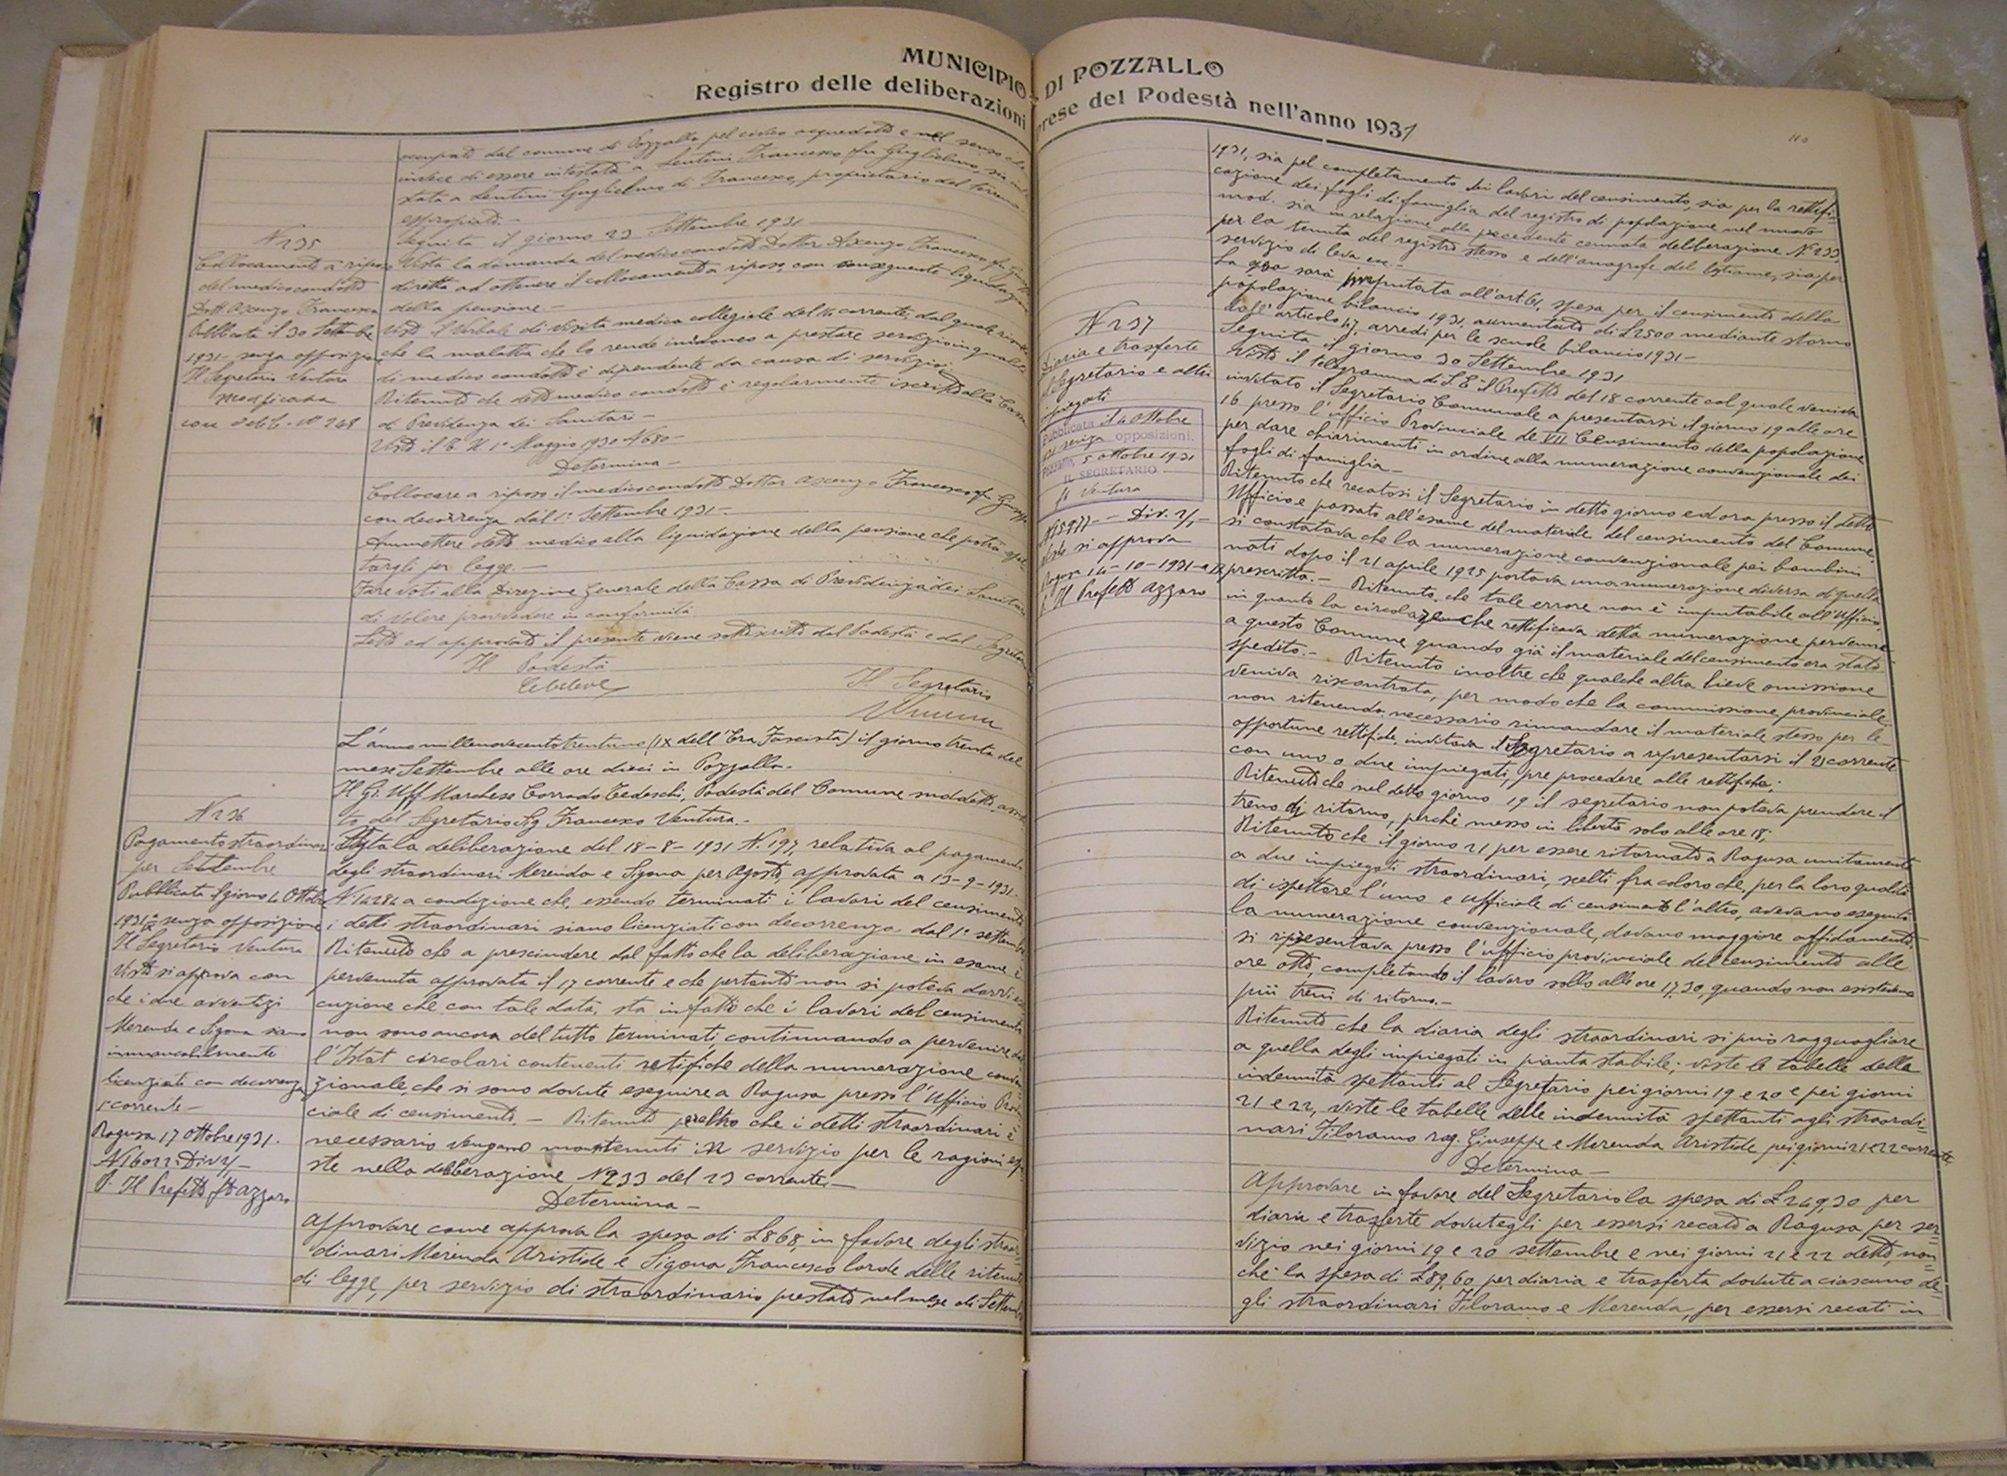 MUNICIPIO DI POZZALLO
Registro delle deliberazioni prese del Podestà nell'anno 1931
occupato dal comune di Pozzallo pel civico acquedotto e nel senso che
invece di essere intestata a Lentini Francesco fu Guglielmo, sia
stata a Lentini Guglielmo di Francesco, proprietario del terreno
espropriato.-
Seguita il giorno 23 Settembre 1931
N 235
Collocamento a riposo
del medico condotto
Dott. Ascenzo Francesco
Pubblicata il 30 Settembre
1931 - senza opposizione
Il Segretario Ventura
modificata
con delib. n° 248
Vista la domanda del medico condotto Dottor Ascenzo Francesco fu
diretta ad ottenere il collocamento a riposo con conseguente liquidazione
della pensione -
Visto il Verbale di visita medica collegiale del 16 corrente, dal quale
che la malattia che lo rende inidoneo a prestare servizio in qualità
di medico condotto è dipendente da causa di servizio;
Ritenuto che detto medico condotto è regolarmente iscritto alla Cassa
di Previdenza dei Sanitari -
Visto il T. U. 1° Maggio 1930 N° 680 -
Determina -
Collocare a riposo il medico condotto Dottor Ascenzo Francesco fu
con decorrenza dal 1° Settembre 1931 -.
Ammettere detto medico alla liquidazione della pensione che potrà
targli per legge. -
Fare voti alla Direzione Generale della Cassa di Previdenza dei Sanitari
di volere provvedere in conformità
Letto ed approvato il presente viene sottoscritto dal Podestà e dal Segretario
Il Podestà
Il Segretario
L'anno millenovecentotrentuno (IX dell'Era Fascista) il giorno trenta del
mese Settembre alle ore dieci in Pozzallo.
Il Gr. Uff Marchese Corrado Tedeschi, Podestà del Comune suddetto,
to del Segretario Sig Francesco Ventura.-
N 236
Pagamento straordinari
per Settembre
Pubblicata il giorno 4 Ottobre
1931 senza opposizione
Il Segretario Ventura
Visto si approva con
che i due avventizi
Merenda e Sigona siano
immancabilmente
licenziati con decorrenza
corrente -
Ragusa 17 Ottobre 1931.
N 16022 Div 2/1 -
P. Il Prefetto fto Azzaro
Vista la deliberazione del 18-8-1931 N. 197, relativa al pagamento
degli straordinari Merenda e Sigona per Agosto, approvata a 13-9-1931.
N 14284 a condizione che, essendo terminati i lavori del censimento
i detti straordinari siano licenziati con decorrenza dal 1° settembre
Ritenuto che a prescindere dal fatto che la deliberazione in esame è
pervenuta approvata il 17 corrente e che pertanto non si poteva darvi
cuzione che con tale data, sta in fatto che i lavori del censimento
non sono ancora del tutto terminati, continuando a pervenire
l'Istat circolari contenenti rettifiche della numerazione
zionale, che si sono dovute eseguire a Ragusa presso l'Ufficio
ciale di censimento. - Ritenuto peraltro che i detti straordinari è
necessario vengano mantenuti in servizio per le ragioni
ste nella deliberazione N° 233 del 23 corrente. -
Determina -
Approvare come approva la spesa di £ 868, in favore degli straor=
dinari Merenda Aristide e Sigona Francesco lorde delle ritenute
di legge, per servizio di straordinario prestato nel mese di Settembre
1931, sia pel completamento dei lavori del censimento, sia per la rettifi=
cazione dei fogli di famiglia del registro di popolazione nel nuovo
mod. sia in relazione alla precedente cennata deliberazione N. 233
per la tenuta del registro stesso e dell'anagrafe del bestiame, sia per
servizio di leva ecc -
La spesa sarà imputata all'art. 61, spesa per il censimento della
popolazione bilancio 1931, aumentato di £ 2500 mediante storno
dall'articolo 47, arredi per le scuole bilancio 1931 -
Seguita il giorno 30 Settembre 1931
N 237
Diaria e trasferte
Segretario e altri
impiegati
Pubblicata il 4 Ottobre
senza opposizioni.
5 ottobre 1931
IL SEGRETARIO
Ventura
N 15977 - Div. 2/1 -
Visto si approva
Ragusa 14-10-1931
p. Il Prefetto Azzaro
Visto il telegramma di S. E. il Prefetto del 18 corrente col quale veniva
invitato il Segretario Comunale a presentarsi il giorno 19 alle ore
16 presso l'ufficio Provinciale de VII Censimento della popolazione
per dare chiarimenti in ordine alla numerazione convenzionale dei
fogli di famiglia -
Ritenuto che recatosi il Segretario in detto giorno ed ora presso il detto
Ufficio e passato all'esame del materiale del censimento del Comune
si constatava che la numerazione convenzionale pei bambini
nati dopo il 21 aprile 1925 portava una numerazione diversa di quella
prescritta. - Ritenuto che tale errore non è imputabile all'Ufficio,
in quanto la circolare che rettificava detta numerazione pervenne
a questo Comune quando già il materiale del censimento era stato
spedito. - Ritenuto inoltre che qualche altra lieve omissione
veniva riscontrata, per modo che la commissione provinciale
non ritenendo necessario rimandare il materiale stesso per le
opportune rettifiche, invitava il Segretario a ripresentarsi il 21 corrente
con uno o due impiegati, pre procedere alle rettifiche;
Ritenuto che nel detto giorno 19 il segretario non poteva prendere il
treno di ritorno, perchè messo in libertà solo alle ore 18;
Ritenuto che il giorno 21 per essere ritornato a Ragusa unitamente
a due impiegati straordinari, scelti fra coloro che, per la loro qualità
di ispettore l'uno e ufficiale di censimento l'altro, avevano eseguito
la numerazione convenzionale, davano maggiore affidamento,
si ripresentava presso l'ufficio provinciale del censimento alle
ore otto, completando il lavoro sollo alle ore 17,30, quando non esistevano
più treni di ritorno. -
Ritenuto che la diaria degli straordinari si può ragguagliare
a quella degli impiegati in pianta stabile; viste le tabelle delle
indennità spettanti al Segretario pei giorni 19 e 20 e pei giorni
21 e 22, viste le tabelle delle indennità spettanti agli straordi=
nari Filoramo rag. Giuseppe e Merenda Aristide pei giorni 21 e 22 corrente
Determina -
Approvare in favore del Segretario la spesa di £ 249,30 per
diaria e trasferte dovutegli per essersi recato a Ragusa per ser=
vizio nei giorni 19 e 20 settembre e nei giorni 21 e 22 detto, non=
chè la spesa di £ 89,60, per diaria e trasferta dovute a ciascuno de=
gli straordinari Filoramo e Merenda, per essersi recati in